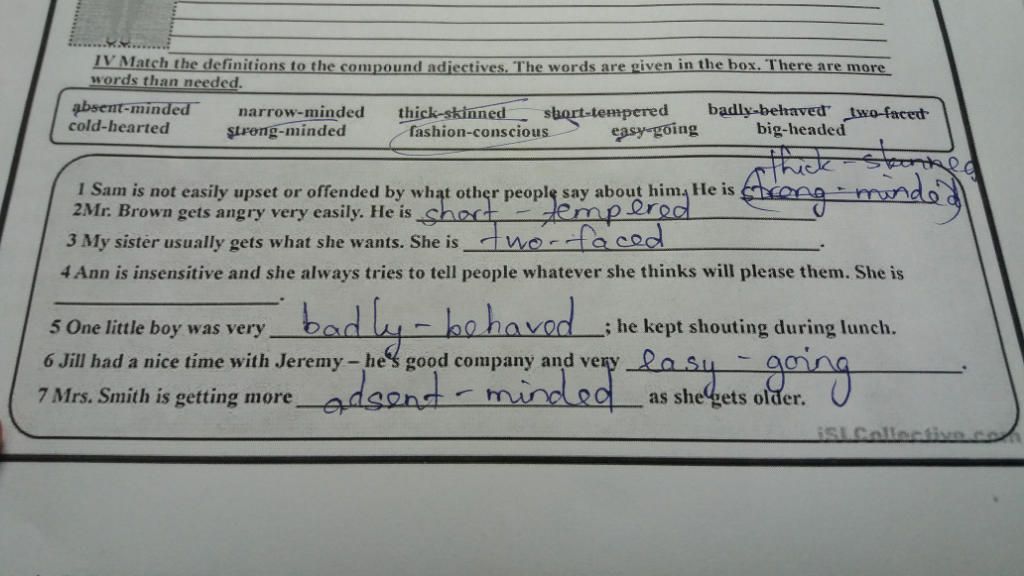 IV Match the definitions to the compound adjectives. The words are given in the box. There are more
words than needed.
absent-minded narrow-minded thick-skinned short-tempered badly-behaved two-faced
cold-hearted strong-minded fashion-conscious easy-going big-headed
thick-skinned
1 Sam is not easily upset or offended by what other people say about him. He is strong-minded
2Mr. Brown gets angry very easily. He is short-tempered
3 My sister usually gets what she wants. She is two-faced.
4 Ann is insensitive and she always tries to tell people whatever she thinks will please them. She is
.
5 One little boy was very badly-behaved; he kept shouting during lunch.
6 Jill had a nice time with Jeremy – he's good company and very easy-going.
7 Mrs. Smith is getting more adsent-minded as she gets older.
iSLCollective.com